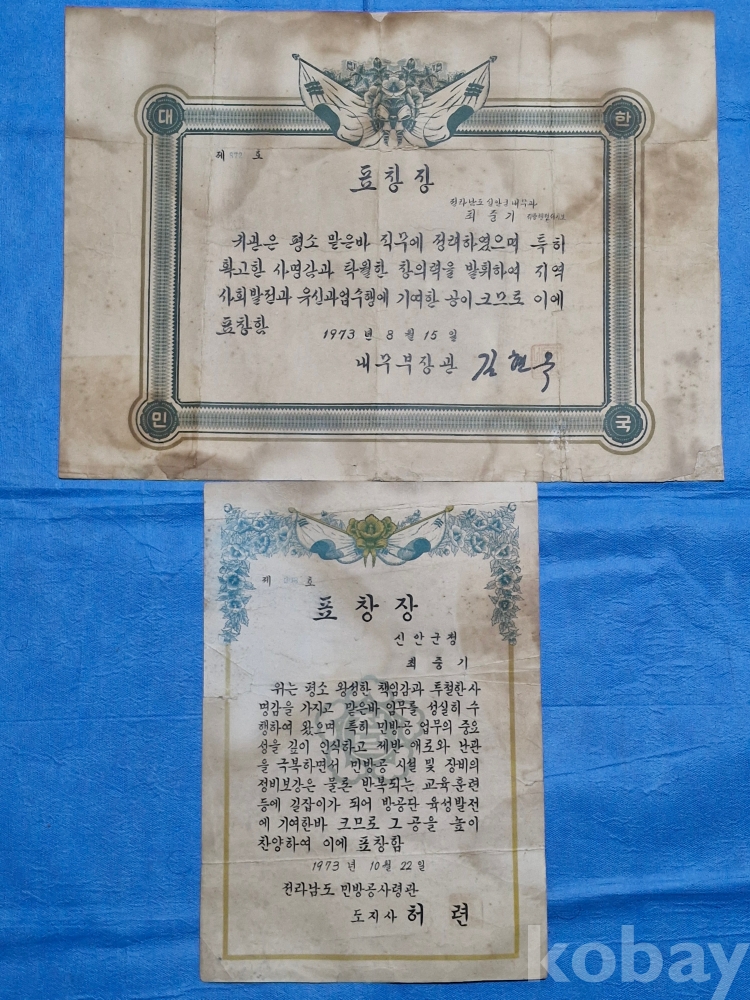 대 한
제 호
표창장
전라남도 신안군 내무과
최중기
귀관은 평소 맡은바 직무에 정려하였으며 특히
확고한 사명감과 탁월한 창의력을 발휘하여 지역
사회발전과 유신과업수행에 기여한 공이 크므로 이에
표창함
1973 년 8 월 15 일
내무부장관 김현옥
민 국
제 호
표창장
신안군청
최중기
위는 평소 왕성한 책임감과 투철한사
명감을 가지고 맡은바 임무를 성실히 수
행하여 왔으며 특히 민방공 업무의 중요
성을 깊이 인식하고 제반 애로와 난관
을 극복하면서 민방공 시설 및 장비의
정비보강은 물론 반복되는 교육훈련
등에 길잡이가 되어 방공단 육성발전
에 기여한바 크므로 그 공을 높이
찬양하여 이에 표창함
1973 년 10 월 22 일
전라남도 민방공사령관
도지사 허 련
kobay